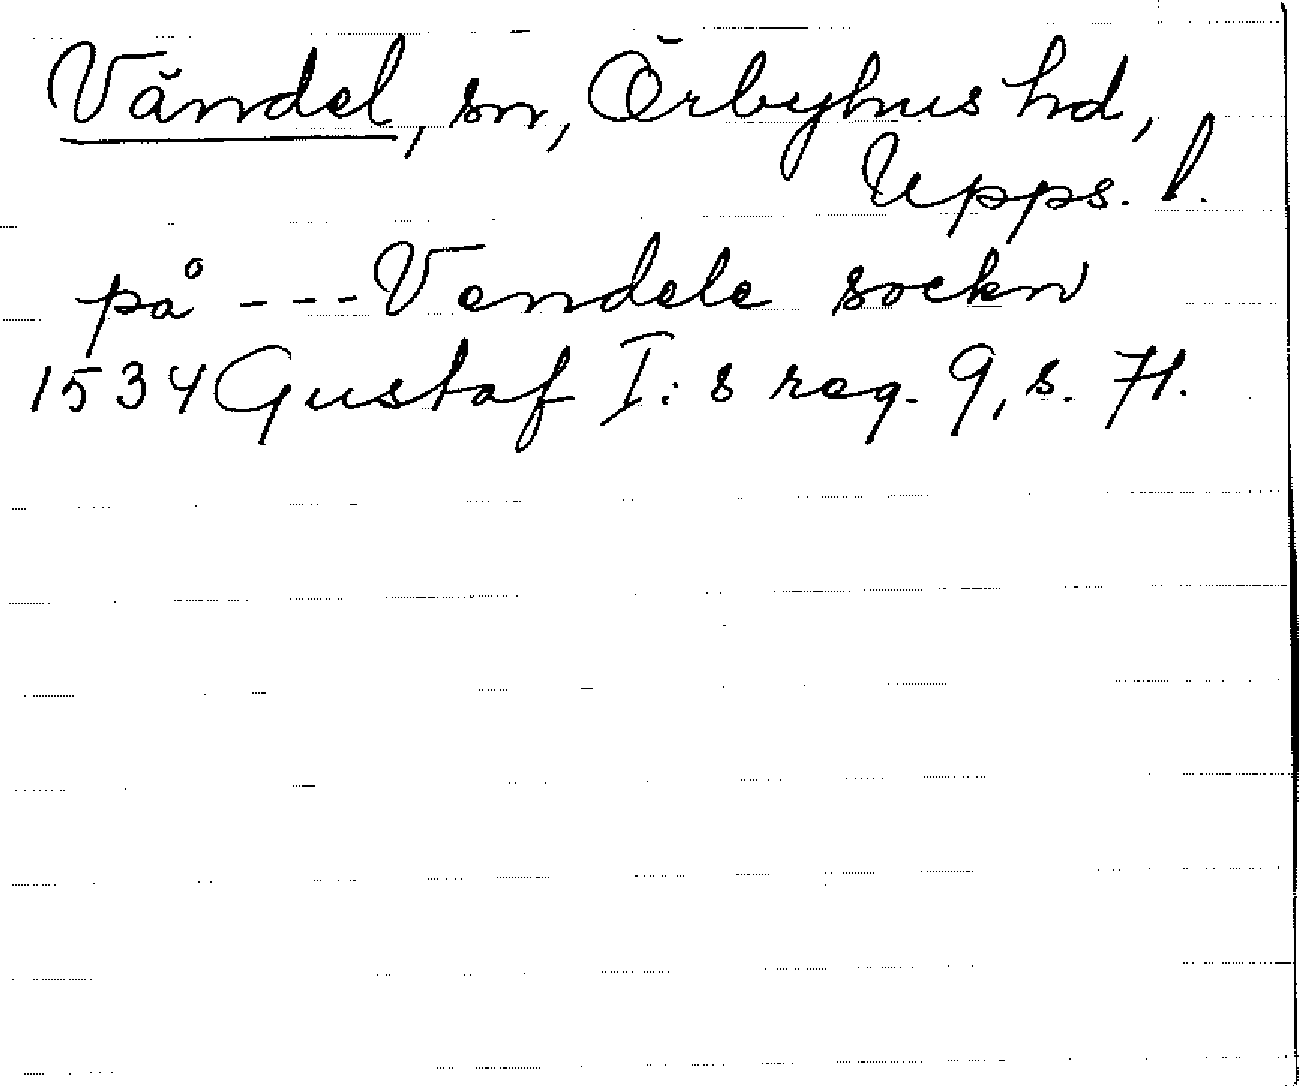 Vändel, sn, Örbyhus hd,
Upps. l.
på --- Vendele sockn
1534 Gustaf I:s reg. 9, s. 71.